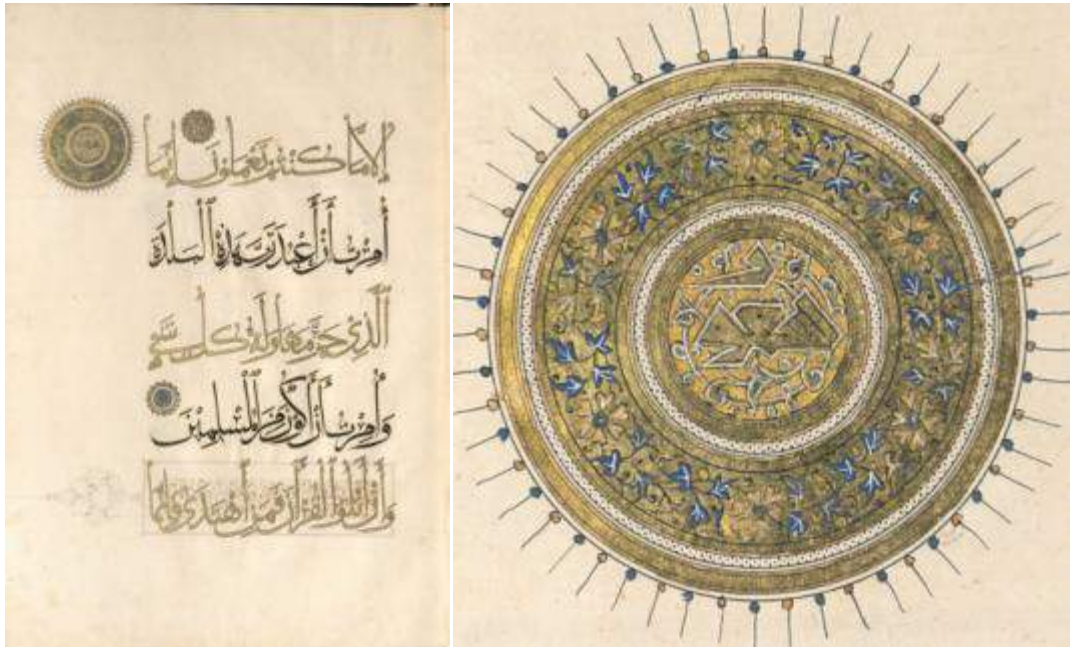 إلا ما كنتم تعملون إنما
أمرت أن أعبد رب هذه البلدة
الذي حرمها وله كل شيء
وأمرت أن أكون من المسلمين
وأن أتلوا القرآن فمن اهتدى فإنما